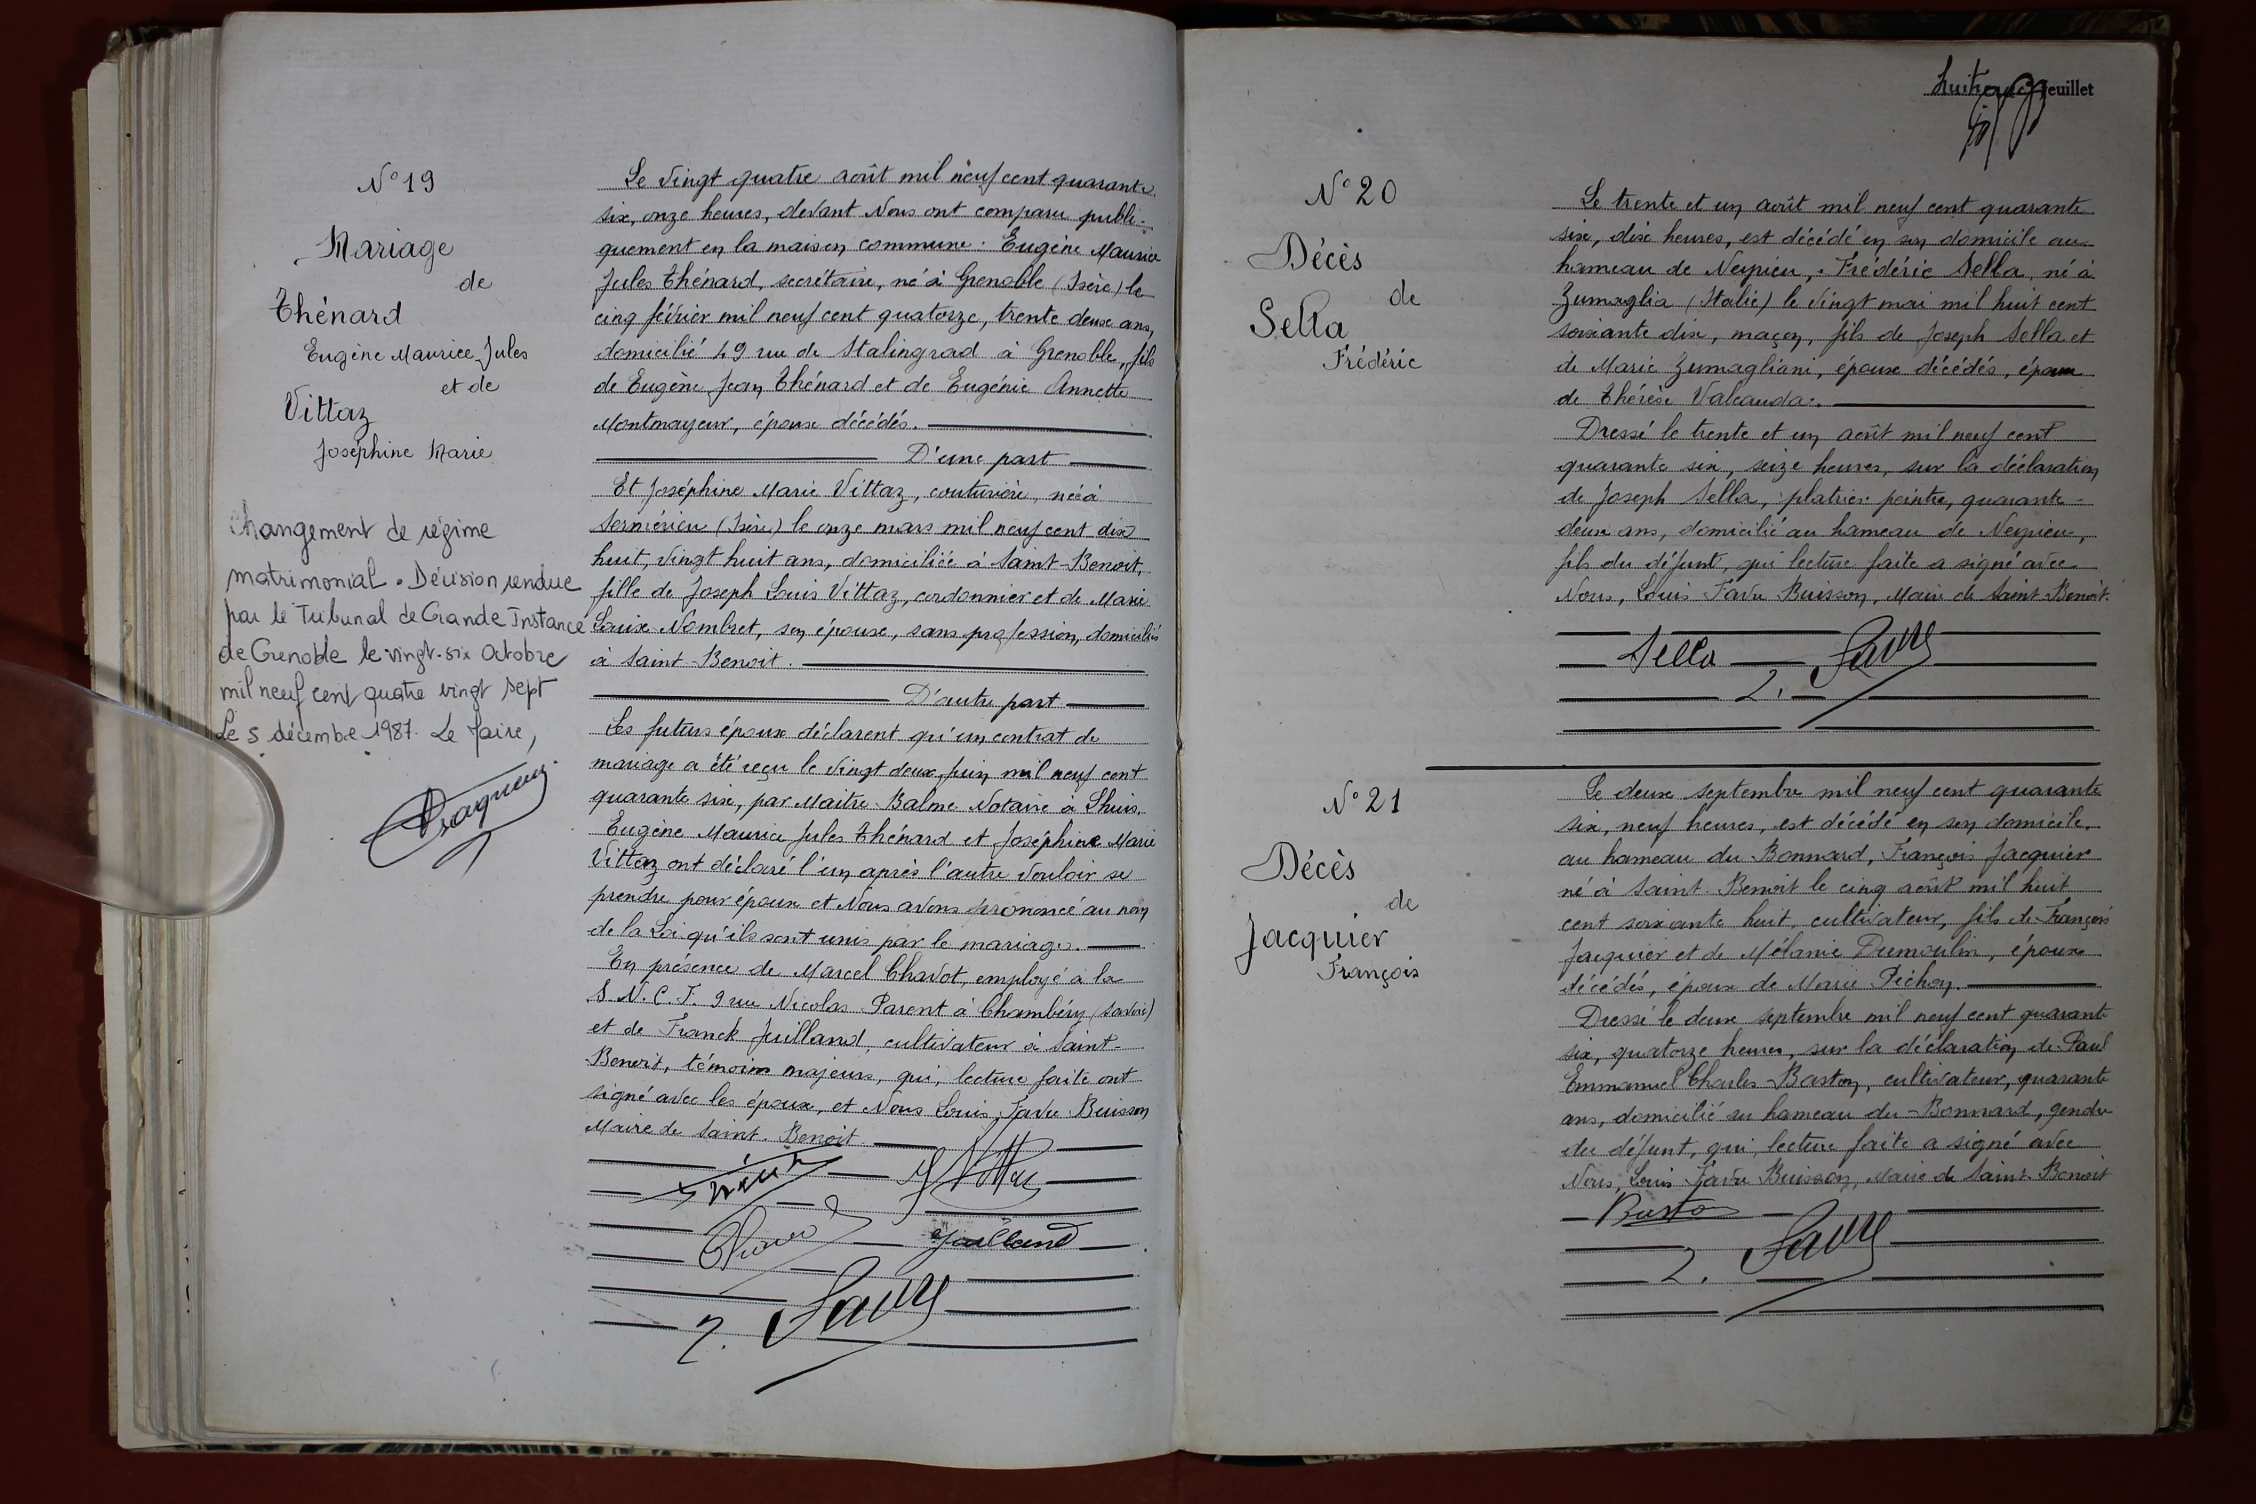 N° 19
Mariage
de
Thénard
Eugène Maurice Jules
et de
Vittaz
Joséphine Marie
Changement de régime
matrimonial. Décision rendue
par le Tribunal de Grande Instance
de Grenoble le vingt-six Octobre
mil neuf cent quatre vingt sept
Le 5 décembre 1987. Le Maire,
Le vingt quatre août mil neuf cent quarante
six, onze heures, devant Nous ont comparu publi-
quement en la maison commune : Eugène Maurice
Jules Thénard, secrétaire, né à Grenoble (Isère) le
cinq février mil neuf cent quatorze, trente deux ans,
domicilié 49 rue de Stalingrad à Grenoble, fils
de Eugène Jean Thénard et de Eugénie Annette
Montmayeur, époux décédés.
D'une part
Et Joséphine Marie Vittaz, couturière, née à
Sermérieu (Isère) le onze mars mil neuf cent dix
huit, vingt huit ans, domiciliée à Saint-Benoit,
fille de Joseph Louis Vittaz, cordonnier et de Marie
Louise Nombret, son épouse, sans profession, domiciliés
à Saint-Benoit.
D'autre part
Les futurs époux déclarent qu'un contrat de
mariage a été reçu le vingt deux juin mil neuf cent
quarante six, par Maitre Balme Notaire à Lhuis.
Eugène Maurice Jules Thénard et Joséphine Marie
Vittaz ont déclaré l'un après l'autre vouloir se
prendre pour époux et Nous avons prononcé au nom
de la Loi qu'ils sont unis par le mariage.
En présence de Marcel Chavot, employé à la
S.N.C.F. 9 rue Nicolas Parent à Chambéry (Savoie)
et de Franck Juilland, cultivateur à Saint-
Benoit, témoins majeurs, qui, lecture faite ont
signé avec les époux, et Nous Louis Favre Buisson
Maire de Saint-Benoit
Juilland
L. Favre
feuillet
N° 20
Décès
de
Sella
Frédéric
Le trente et un août mil neuf cent quarante
six, dix heures, est décédé en son domicile au
hameau de Neyrieu, Frédéric Sella, né à
Zumaglia (Italie) le vingt mai mil huit cent
soixante dix, maçon, fils de Joseph Sella et
de Marie Zumagliani, époux décédés, époux
de Thérèse Valcauda.
Dressé le trente et un août mil neuf cent
quarante six, seize heures, sur la déclaration
de Joseph Sella, platrier peintre, quarante-
deux ans, domicilié au hameau de Neyrieu,
fils du défunt, qui lecture faite a signé avec
Nous, Louis Favre Buisson, Maire de Saint-Benoit.
Sella
L. Favre
N° 21
Décès
de
Jacquier
François
Le deux septembre mil neuf cent quarante
six, neuf heures, est décédé en son domicile
au hameau du Bonnard, François Jacquier
né à Saint-Benoit le cinq août mil huit
cent soixante huit, cultivateur, fils de François
Jacquier et de Mélanie Dumoulin, époux
décédés, époux de Marie Pichon.
Dressé le deux septembre mil neuf cent quarante
six, quatorze heures, sur la déclaration de Paul
Emmanuel Charles Baston, cultivateur, quarante
ans, domicilié au hameau du Bonnard, gendre
du défunt, qui, lecture faite a signé avec
Nous, Louis Favre Buisson, Maire de Saint-Benoit
Baston
L. Favre